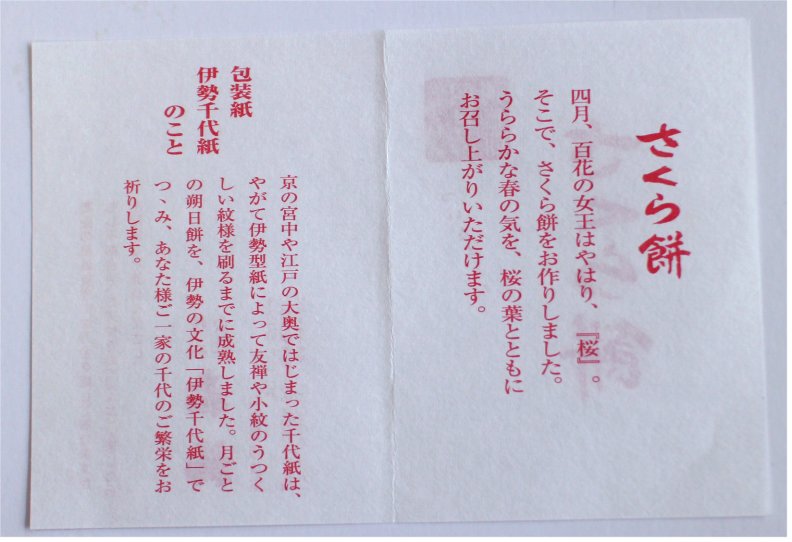 さくら餅
四月、百花の女王はやはり、『桜』。
そこで、さくら餅をお作りしました。
うららかな春の気を、桜の葉とともに
お召し上がりいただけます。
包装紙
伊勢千代紙
のこと
京の宮中や江戸の大奥ではじまった千代紙は、
やがて伊勢型紙によって友禅や小紋のうつく
しい紋様を刷るまでに成熟しました。月ごと
の朔日餅を、伊勢の文化「伊勢千代紙」で
つゝみ、あなた様ご一家の千代のご繁栄をお
祈りします。